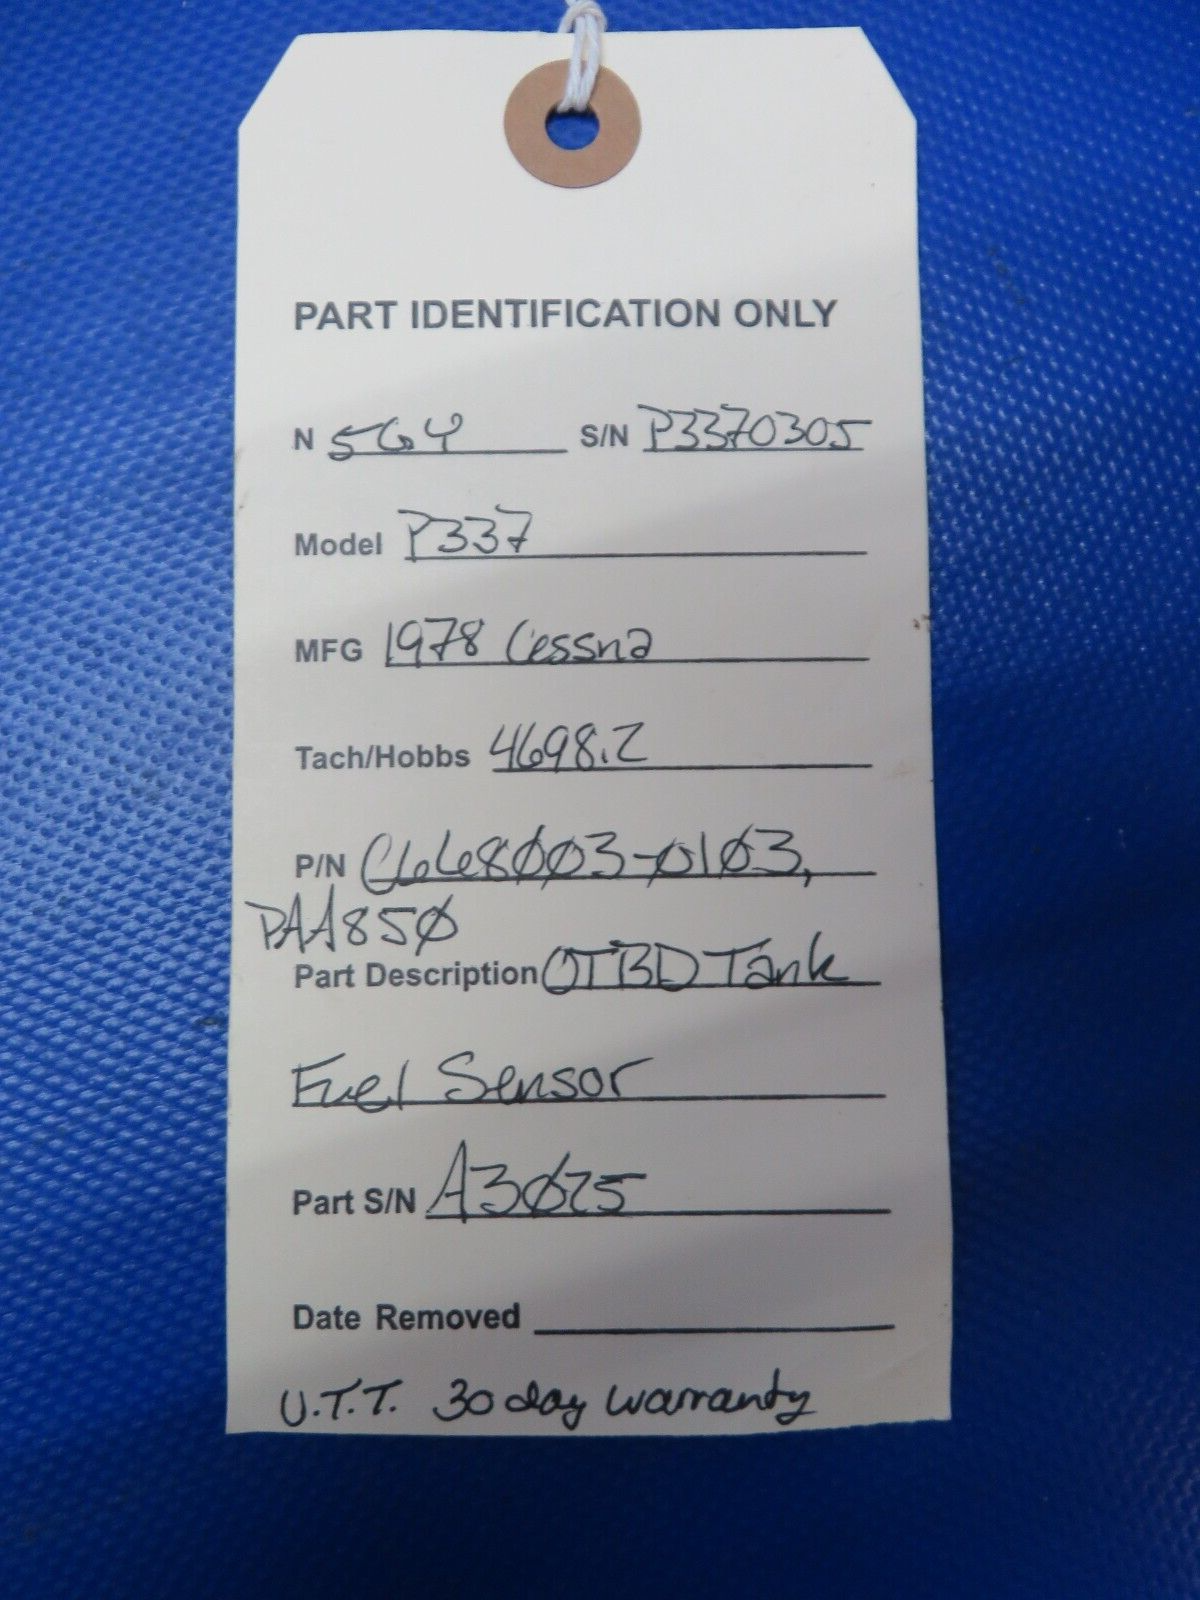 PART IDENTIFICATION ONLY
N 56Y S/N P3370305
Model P337
MFG 1978 Cessna
Tach/Hobbs 4698.2
P/N C668ØØ3-Ø1Ø3,
PAA85Ø
Part Description OTBD Tank
Fuel Sensor
Part S/N A3Ø25
Date Removed
U.T.T. 30 day warranty